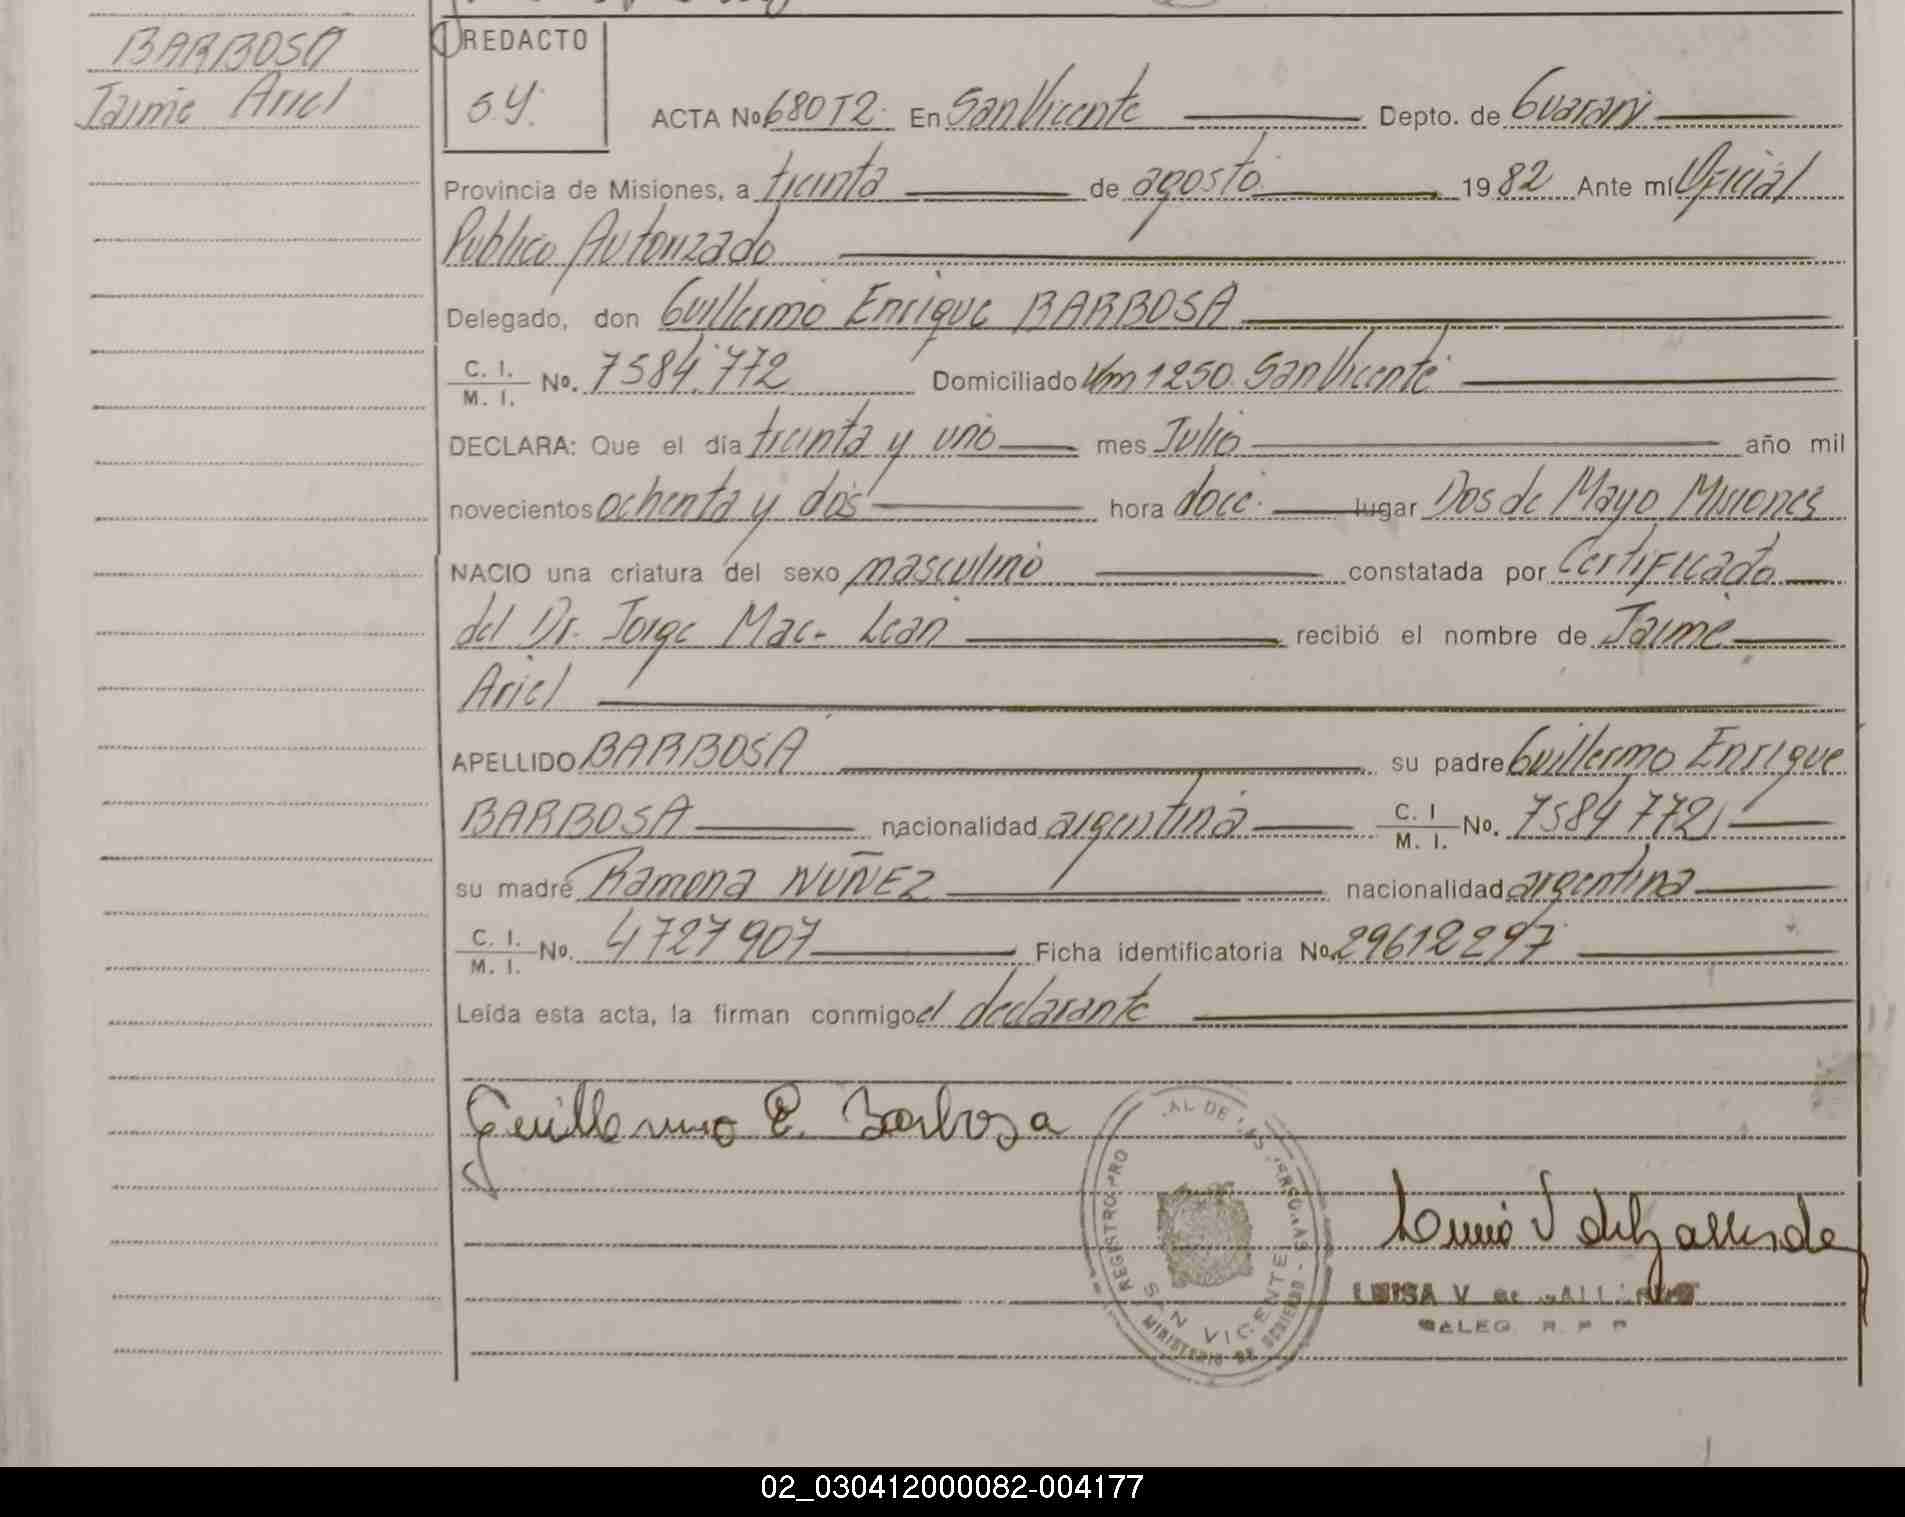 BARBOSA
Jaime Ariel
REDACTO
S.Y.
ACTA No 680T2. En San Vicente Depto. de Guarani
Provincia de Misiones, a treinta de agosto 1982 Ante mí Oficial
Publico Autorizado
Delegado, don Guillermo Enrique BARBOSA
C. I.
M. I. No. 7584.772 Domiciliado Km 1250. San Vicente
DECLARA: Que el día treinta y uno mes Julio año mil
novecientos ochenta y dos hora doce. lugar Dos de Mayo Misiones
NACIO una criatura del sexo masculino constatada por Certificado
del Dr. Jorge Mac- Lean recibió el nombre de Jaime
Ariel
APELLIDO BARBOSA su padre Guillermo Enrique
BARBOSA nacionalidad argentina C. I
M. I. No. 7584772
su madre Ramona NUÑEZ nacionalidad argentina
C. I.
M. I. No. 4727907 Ficha identificatoria No. 29612297
Leída esta acta, la firman conmigo el declarante
Guillermo E. Barbosa
REGISTRO PRO AL DE LAS PERSONAS
SAN VICENTE
MINISTERIO DE GOBIERNO
LUISA V de
DALEG. R. P. P
02_030412000082-004177